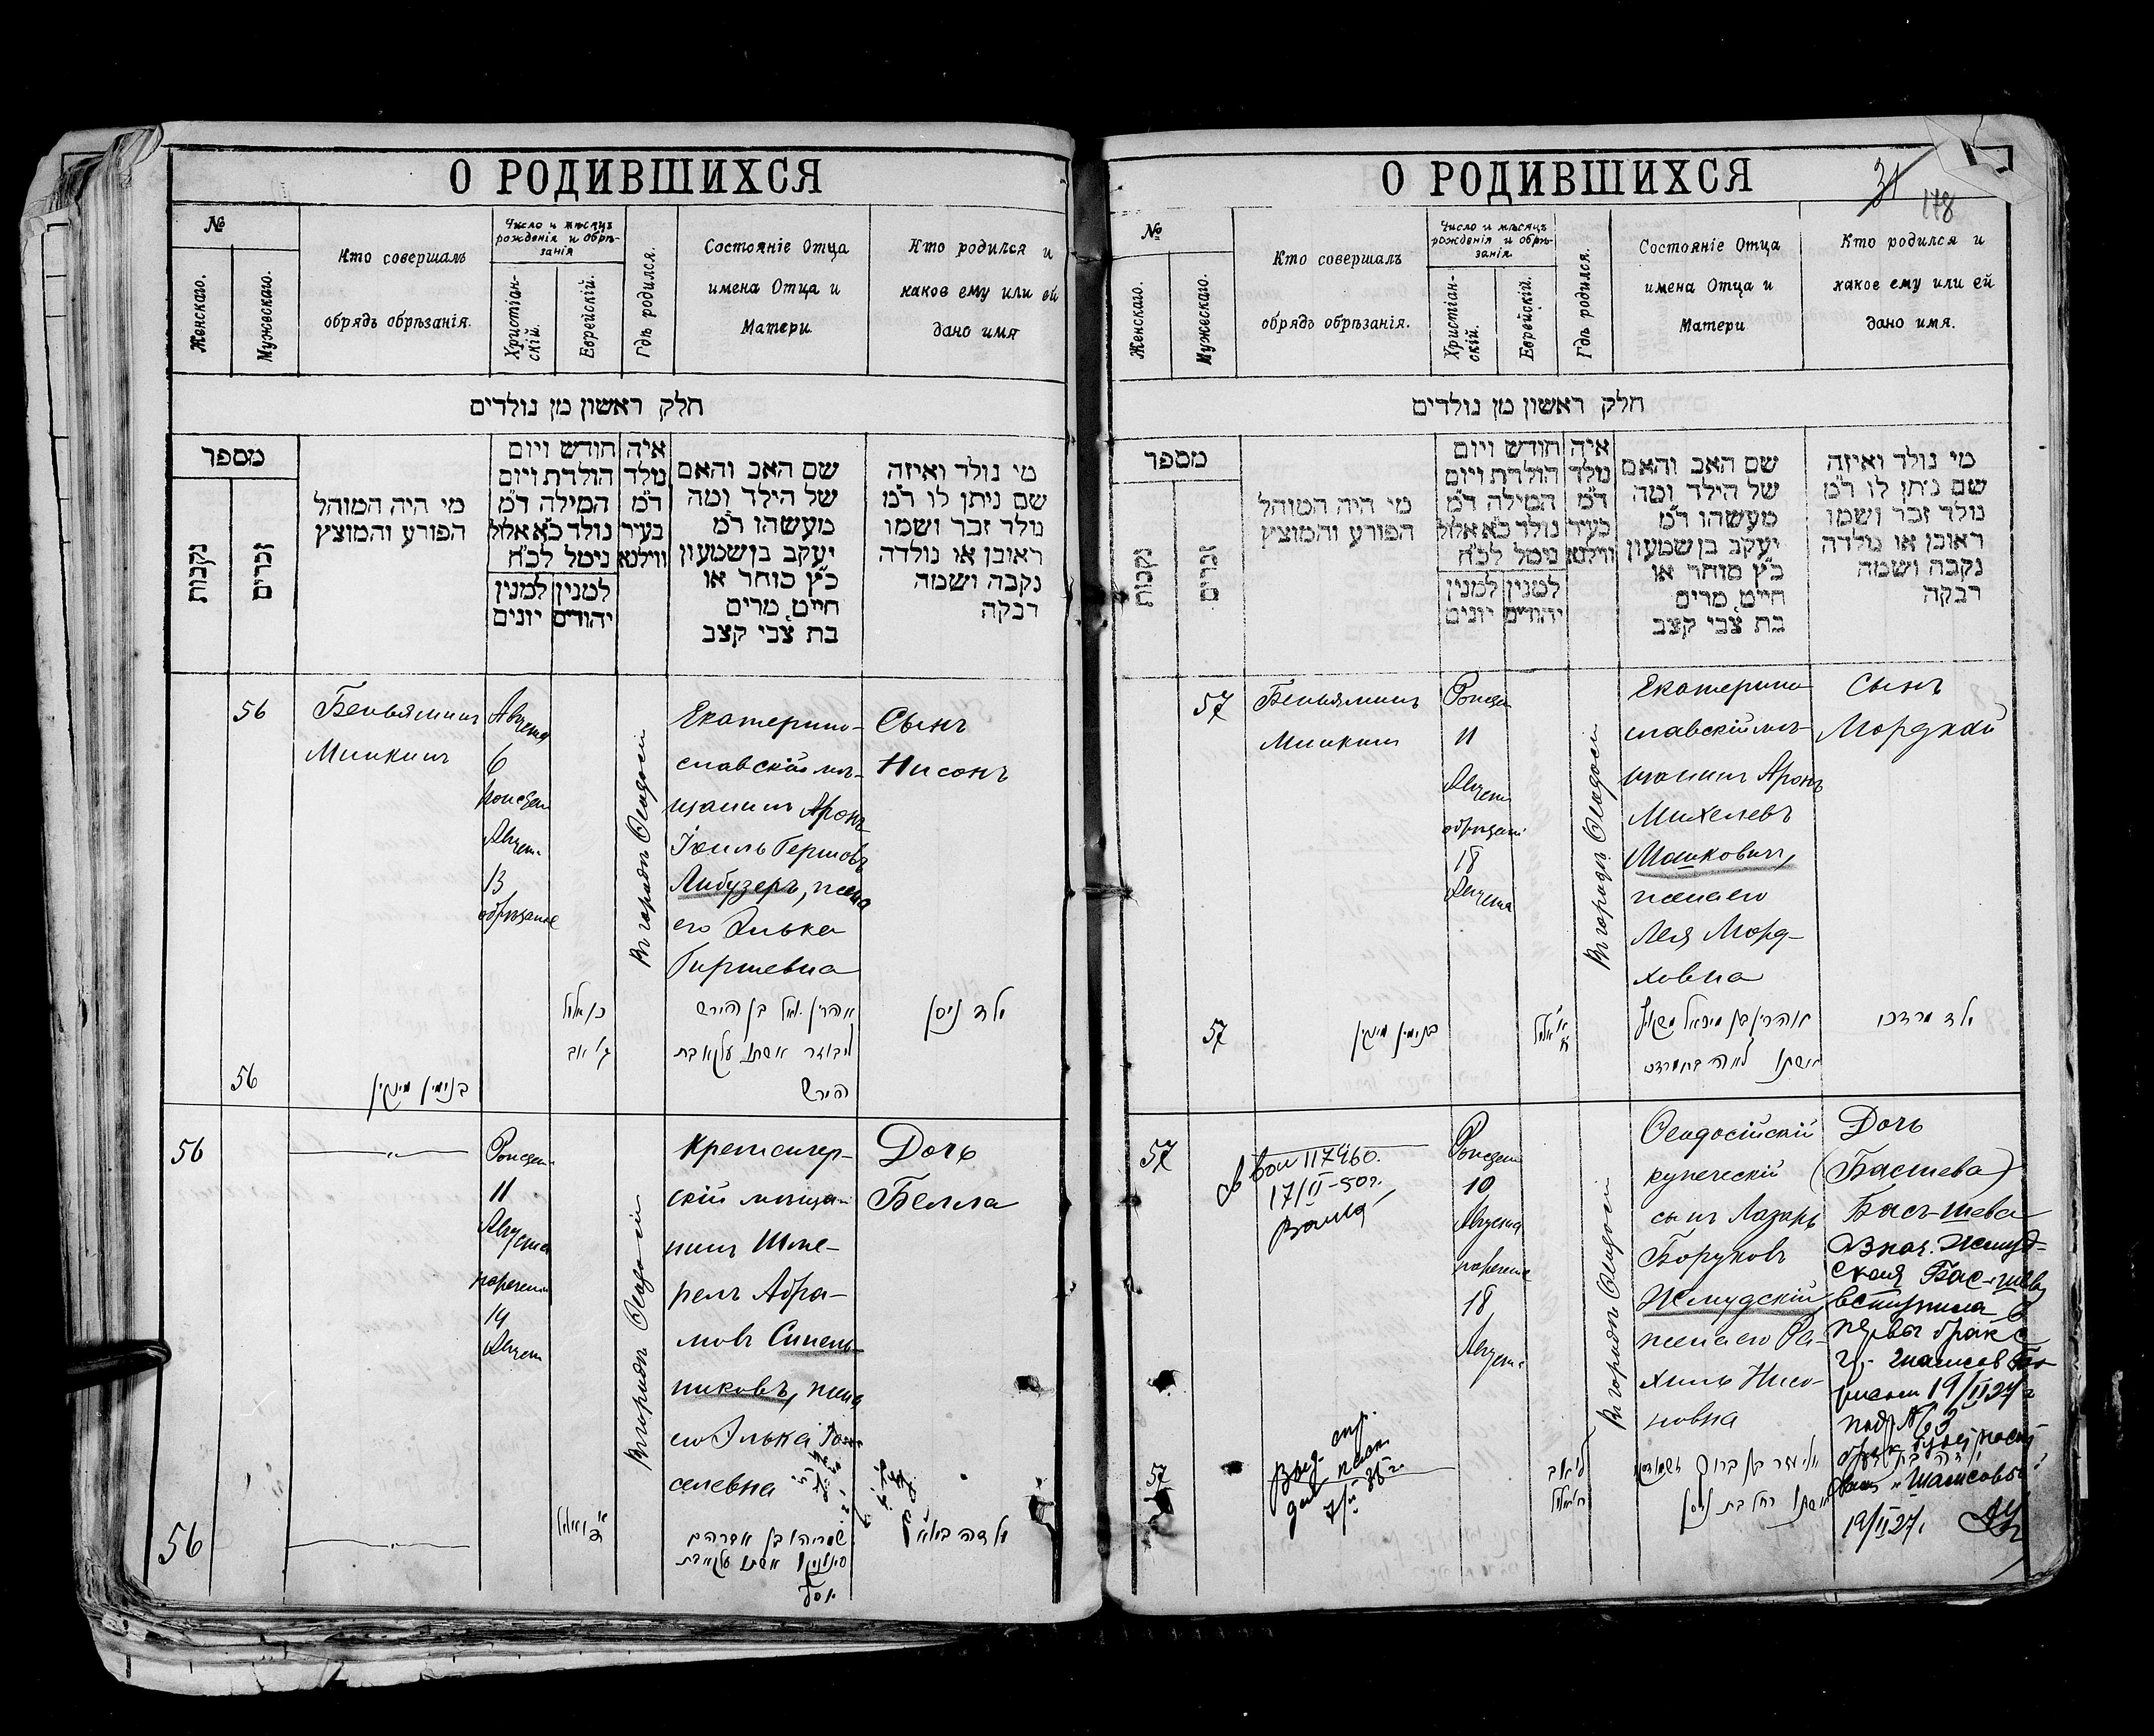 О РОДИВШИХСЯ
№
Женскаго.
Мужескаго.
Кто совершалъ
обрядъ обрѣзанія.
Число и мѣсяцъ
рожденія и обрѣ-
занія
Христіан-
скій.
Еврейскій.
Гдѣ родился.
Состояніе Отца
имена Отца и
Матери
Кто родился и
какое ему или ей
дано имя
חלק ראשון מן נולדים
מספר
נקבות
זכרים
מי היה המוהל
הפורע והמוצץ
חודש ויום
הולדת ויום
המילה ד״מ
נולד כ״א אלול
נימל לכ״ח
למנין
יהודים
למנין
יונים
איה
נולד
ד״מ
בעיר
ווילנא
שם האב והאם
של הילד ומה
מעשהו ד״מ
יעקב בן שמעון
כ״ץ סוחר או
חייט, מרים
בת צבי קצב
מי נולד ואיזה
שם ניתן לו ד״מ
נולד זכר ושמו
ראובן או נולדה
נקבה ושמה
רבקה
56
Беньяминъ
Минкинъ
Августа
6
13
обрѣзаніе
Въ городѣ Ѳеодосіи
Екатерино-
славскій мѣ-
щанинъ Аронъ
Іоиль Гершовъ
Либузеръ, жена
его Элька
Гиршевна
Сынъ
Нисонъ
56
בנימין מינקין
אהרן יואל בן הירש
ליבוזר אשתו עלקא בת
הירש
ילד ניסן
56
11
Августа
нареченіе
14
Въ городѣ Ѳеодосіи
Кременчуг-
скій мѣща-
нинъ Шме-
релъ Абра-
мовъ Синель-
никовъ, жена
его Элька Іо-
селевна
Дочь
Белла
56
שמריהו בן אברהם
סינלניקוב אשתו עלקא בת
יוסף
ילדה ביילא
О РОДИВШИХСЯ
31
118
№
Женскаго.
Мужескаго.
Кто совершалъ
обрядъ обрѣзанія.
Число и мѣсяцъ
рожденія и обрѣ-
занія.
Христіан-
скій.
Еврейскій.
Гдѣ родился.
Состояніе Отца
имена Отца и
Матери
Кто родился и
какое ему или ей
дано имя.
חלק ראשון מן נולדים
מספר
נקבות
זכרים
מי היה המוהל
הפורע והמוצץ
חודש ויום
הולדת ויום
המילה ד״מ
נולד כ״א אלול
נימל לכ״ח
למנין
יהודים
למנין
יונים
איה
נולד
ד״מ
בעיר
ווילנא
שם האב והאם
של הילד ומה
מעשהו ד״מ
יעקב בן שמעון
כ״ץ סוחר או
חייט, מרים
בת צבי קצב
מי נולד ואיזה
שם ניתן לו ד״מ
נולד זכר ושמו
ראובן או נולדה
נקבה ושמה
רבקה
57
Беньяминъ
Минкинъ
11
Августа
18
Августа
Въ городѣ Ѳеодосіи
Екатерино-
славскій мѣ-
щанинъ Аронъ
Михелевъ
Машкович,
жена его
Лея Морд-
ховна
Сынъ
Мордхай
57
בנימין מינקין
אשתו לאה בת מרדכי
ילד מרדכי
57
17/II-50г.
10
Августа
нареченіе
18
Августа
Въ городѣ Ѳеодосіи
Ѳеодосійскій
купеческій
сынъ Лазарь
Боруховъ
Жмудскій,
жена его Ра-
хиль Нисо-
новна
Дочь
(Басшева)
Бас-шева
Знач. Жмуд-
ская Бас-шева
вступила в
первы брак с
19/II 27 г
под № 3
19/II 27.
57
אליעזר בן ברוך
אשתו רחל בת ניסן